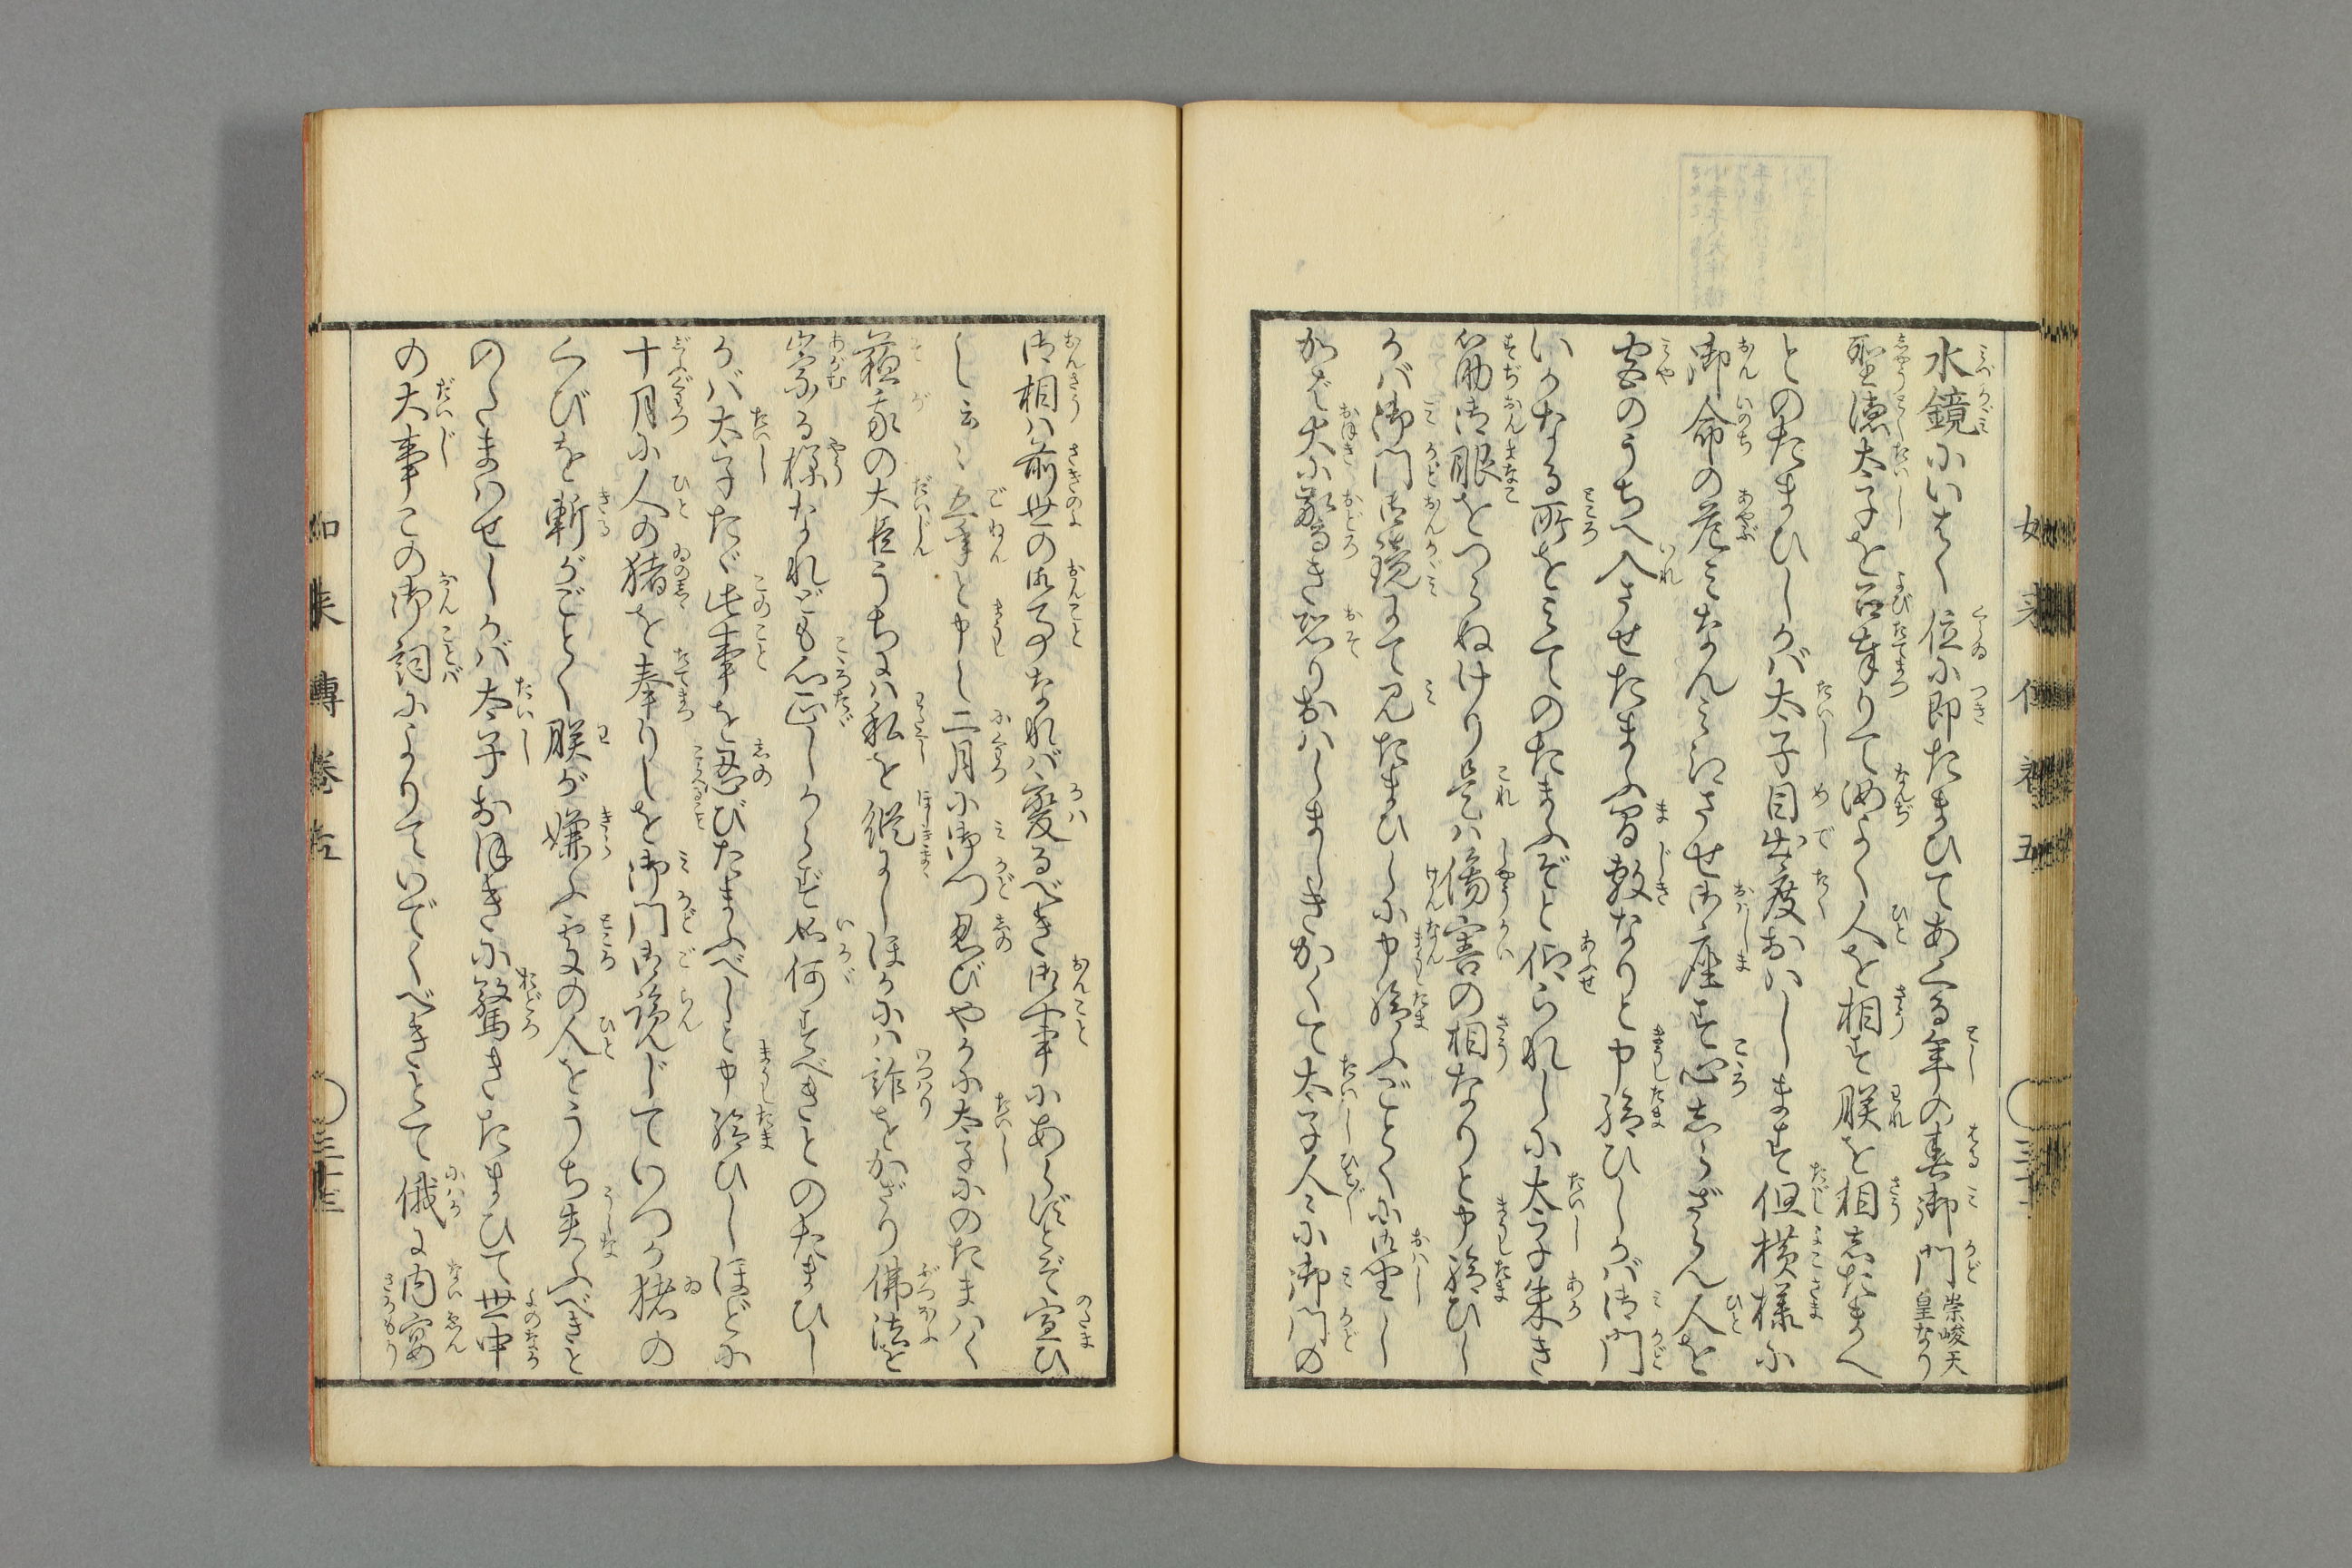 水鏡にいはく位に即たまひてあくる年の春御門崇峻天皇なり
聖徳太子を召奉りて汝よく人を相す朕を相したまへ
とのたまひしかバ太子目出度おハします但横様に
御命の危ミなんミえさせ御座す心しらざらん人を
宮のうちへ入させたまふ間敷なりと申給ひしかバ御門
いかなる所をミてのたまふぞと仰られしに太子朱き
筋御眼をつらぬけり是ハ傷害の相なりと申給ひし
かバ御門御鏡にて見たまひしに申給ふごとくに御坐し
かバ大に驚き恐りおハしましきかくて太子人々に御門の
御相ハ前世の御事なれバ変るべき御事にあらずとぞ宣ひ
し云々五年と申し二月に御門忍びやかに太子にのたまハく
蘇我の大臣うちにハ私を縦にしほかにハ詐をかざり佛法を
崇る様なれども心正しからず如何すべきとのたまひし
かバ太子たゞ此事を忍びたまふべしと申給ひしほどに
十月に人の猪を奉りしを御門御覧じていつか猪の
くびを斬がごとく朕が嫌ふ処の人をうち失ふべきと
のたまハせしかバ太子おほきに驚きたまひて世中
の大事この御詞によりていでくべきとて俄に内宴
女来傳巻五
三十三